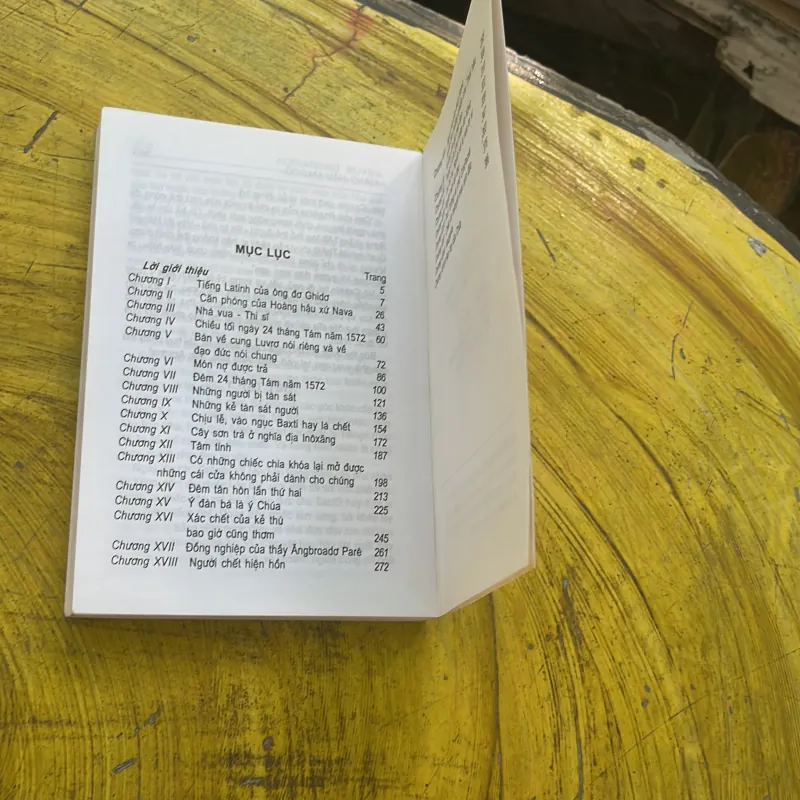 MỤC LỤC
Trang
Lời giới thiệu 5
Chương I Tiếng Latinh của ông đơ Ghidơ 7
Chương II Căn phòng của Hoàng hậu xứ Nava 26
Chương III Nhà vua - Thi sĩ 43
Chương IV Chiều tối ngày 24 tháng Tám năm 1572 60
Chương V Bàn về cung Luvrơ nói riêng và về
đạo đức nói chung 72
Chương VI Món nợ được trả 86
Chương VII Đêm 24 tháng Tám năm 1572 100
Chương VIII Những người bị tàn sát 121
Chương IX Những kẻ tàn sát người 136
Chương X Chịu lễ, vào ngục Baxti hay là chết 154
Chương XI Cây sơn trà ở nghĩa địa Inôxăng 172
Chương XII Tâm tình 187
Chương XIII Có những chiếc chìa khóa lại mở được
những cái cửa không phải dành cho chúng 198
Chương XIV Đêm tân hôn lần thứ hai 213
Chương XV Ý đàn bà là ý Chúa 225
Chương XVI Xác chết của kẻ thù
bao giờ cũng thơm 245
Chương XVII Đồng nghiệp của thầy Ăngbroadơ Parê 261
Chương XVIII Người chết hiện hồn 272